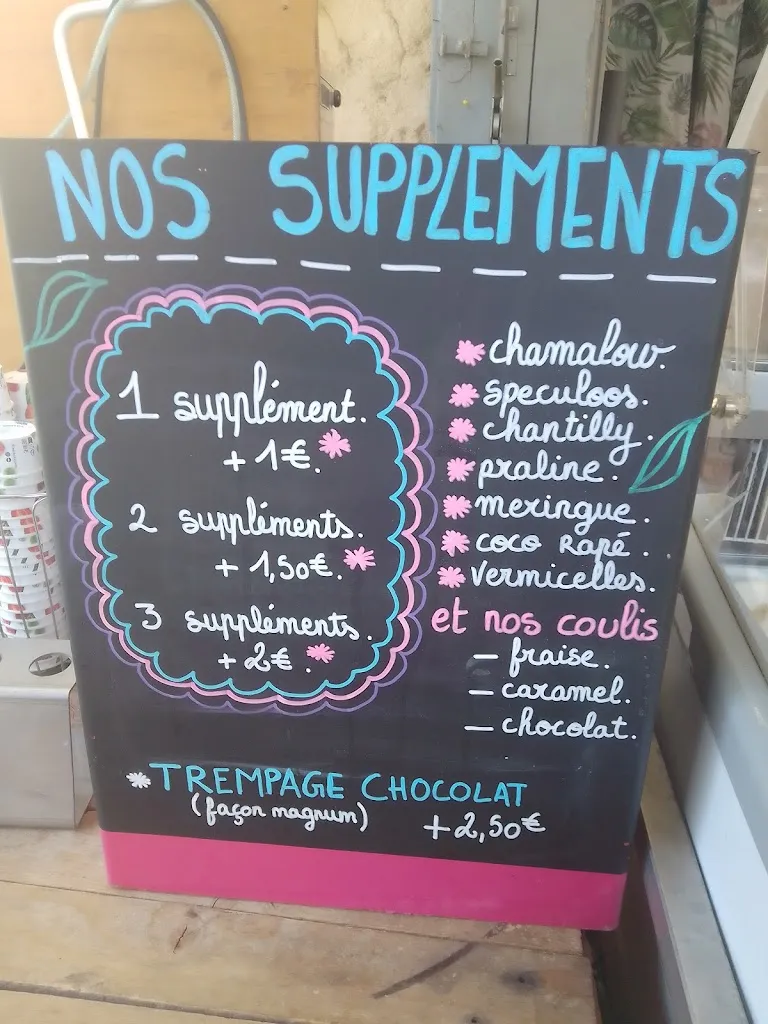 NOS SUPPLEMENTS
1 supplément.
+ 1€.
2 suppléments.
+ 1,50€.
3 suppléments.
+ 2€.
chamalow.
speculoos.
chantilly.
praline.
meringue.
coco Rapé.
vermicelles.
et nos coulis
– fraise.
– caramel.
– chocolat.
*TREMPAGE CHOCOLAT
(façon magnum) +2,50€